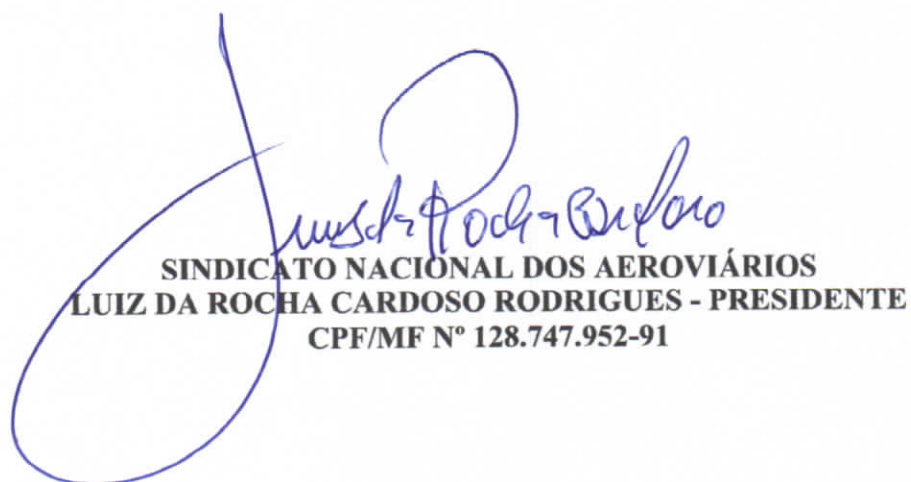 Luiz da Rocha Cardoso
SINDICATO NACIONAL DOS AEROVIÁRIOS
LUIZ DA ROCHA CARDOSO RODRIGUES - PRESIDENTE
CPF/MF Nº 128.747.952-91